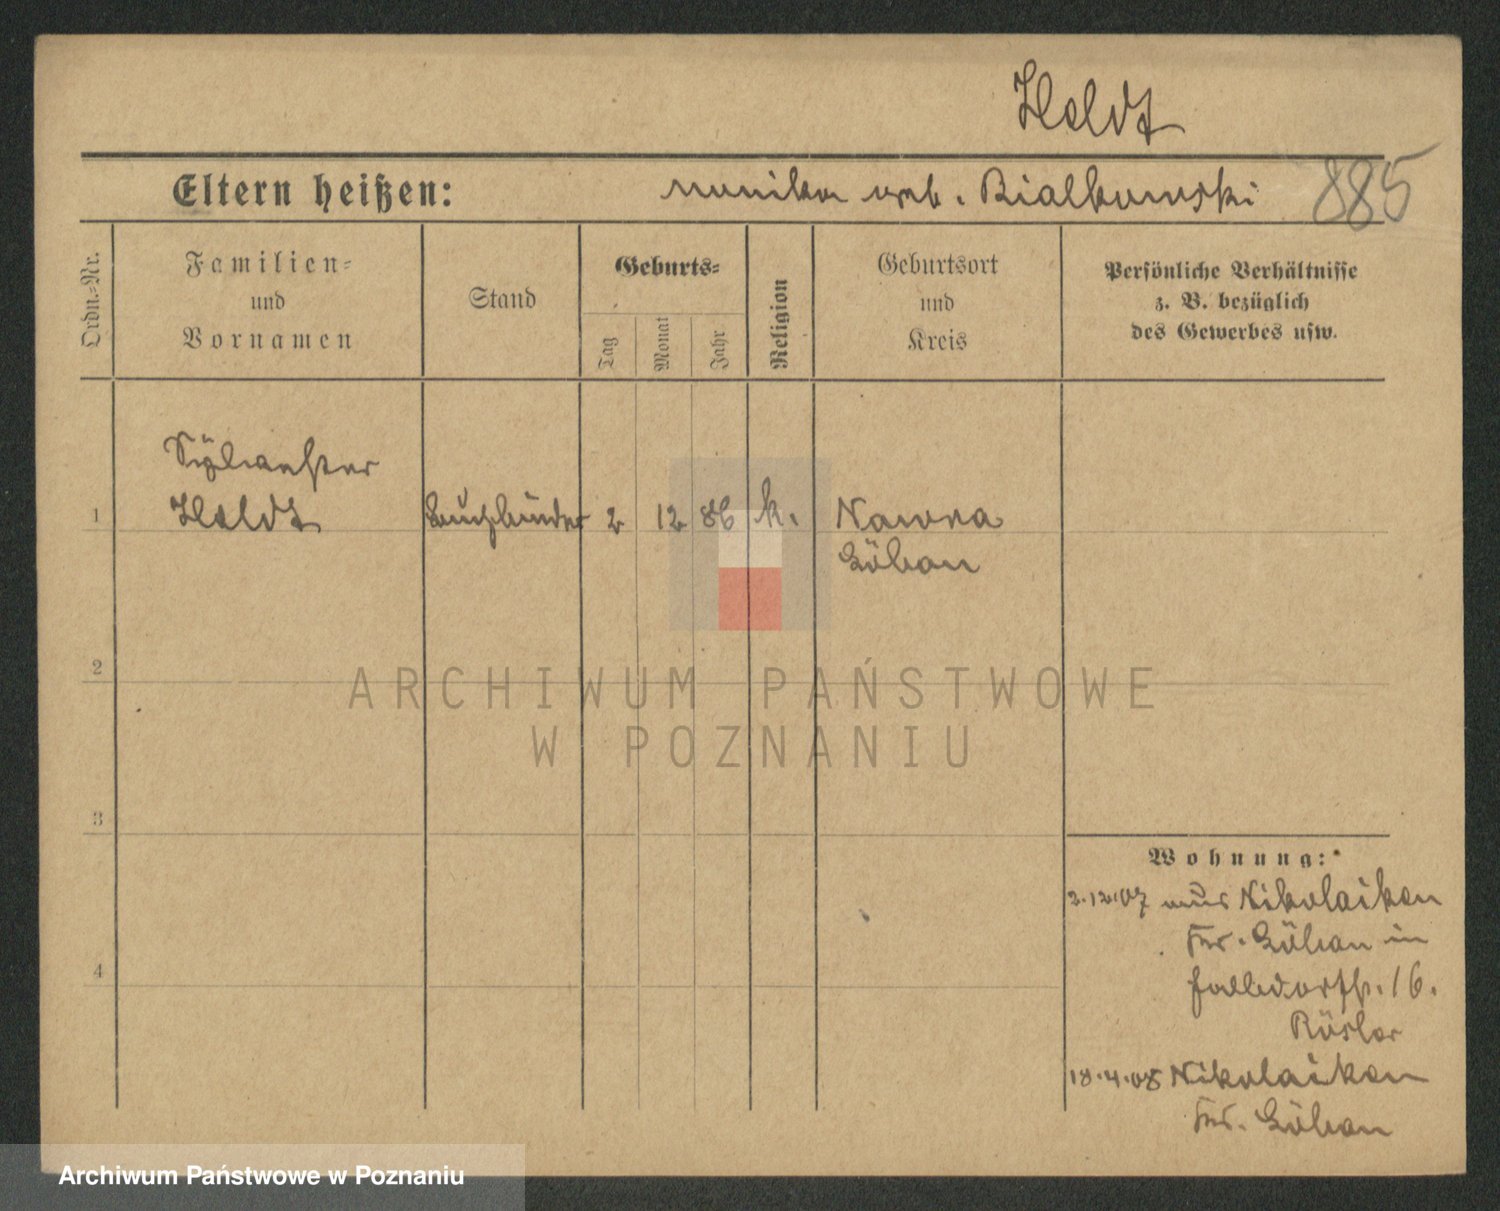 Heldt
Eltern heißen: Monika geb. Bialkowski 885
Ordn.-Nr.
Familien-
und
Vornamen
Stand
Geburts-
Tag
Monat
Jahr
Religion
Geburtsort
und
Kreis
Persönliche Verhältnisse
z. B. bezüglich
des Gewerbes usw.
Sylvester
1 Heldt Buchbinder 2 12 86 k. Nawra
Löbau
2
ARCHIWUM PAŃSTWOWE
W POZNANIU
3
Wohnung:
2.12.07 aus Nikolaiken
Kr. Löbau in
16.
Rösler
4
18.4.08 Nikolaiken
Kr. Löbau
Archiwum Państwowe w Poznaniu